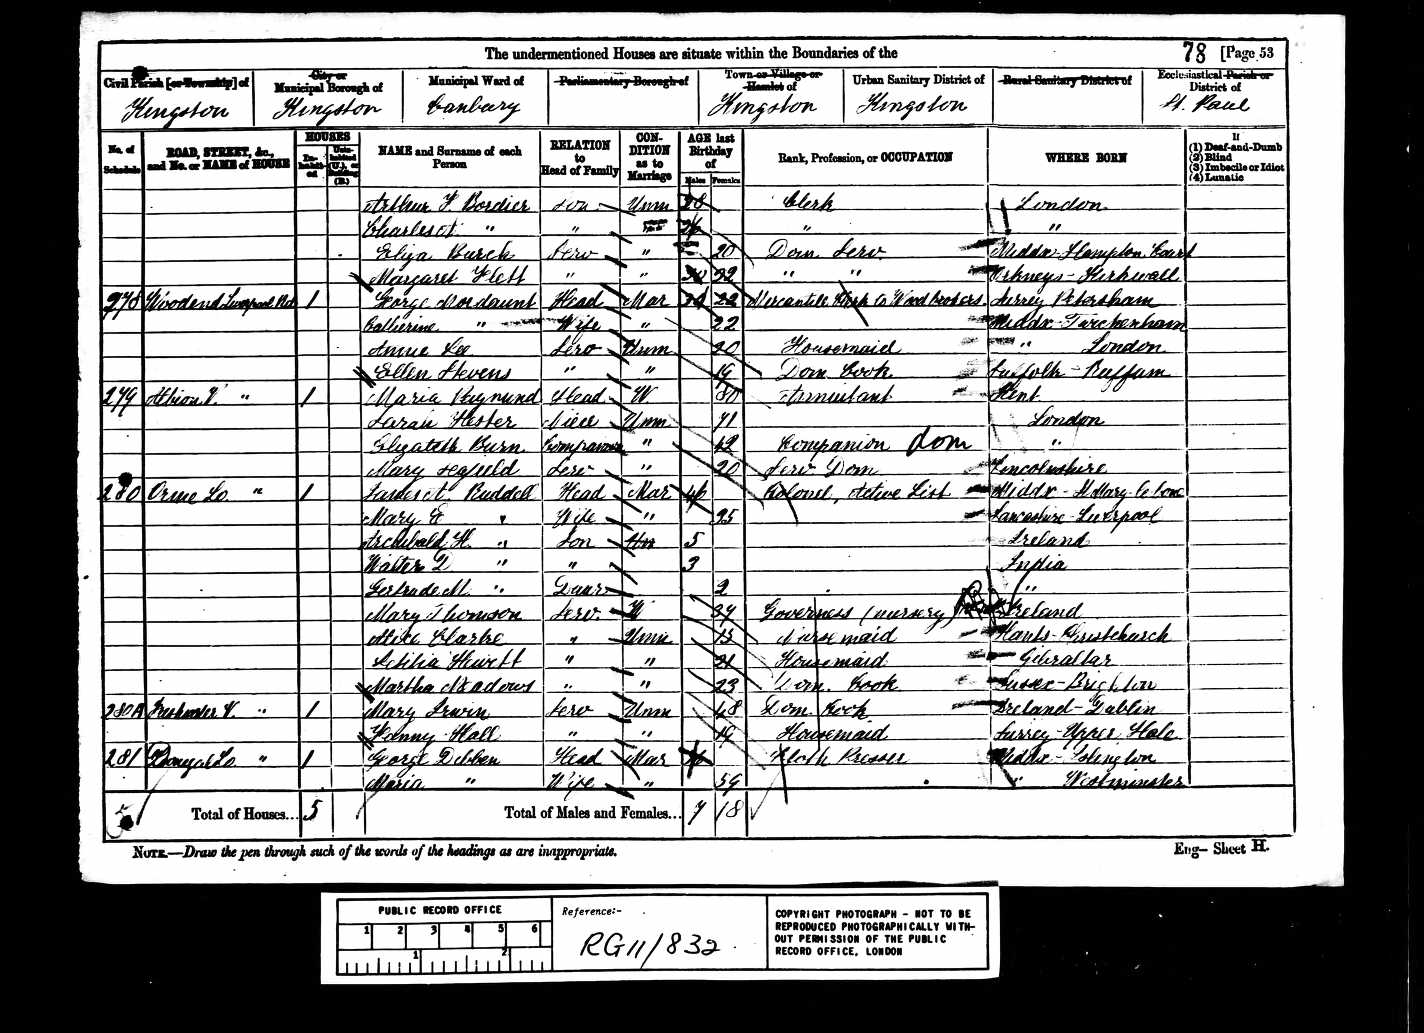 The undermentioned Houses are situate within the Boundaries of the 78 [Page 53
Civil Parish [or Township] of Kingston
City or Municipal Borough of Kingston
Municipal Ward of Canbury
Parliamentary Borough of
Town or Village or Hamlet of Kingston
Urban Sanitary District of Kingston
Rural Sanitary District of
Ecclesiastical Parish or District of St. Paul
No. of Schedule
ROAD, STREET, &c., and No. or NAME of HOUSE
HOUSES
Inhabited
Uninhabited (U.), or Building (B.)
NAME and Surname of each Person
RELATION to Head of Family
CONDITION as to Marriage
AGE last Birthday of
Males Females
Rank, Profession, or OCCUPATION
WHERE BORN
If
(1) Deaf-and-Dumb
(2) Blind
(3) Imbecile or Idiot
(4) Lunatic
Arthur F. Bordier Son Unm 28 Clerk London
Charles " " 26 " "
Eliza Burch Serv " 20 Dom Serv Middx - Hampton Court
Margaret Flett " " 32 " " Orkneys - Kirkwall
278 Woodend Liverpool Rd 1 George Mordaunt Head Mar 22 Mercantile Clerk to Wood Brokers Surrey Petersham
Catherine " Wife " 22 Middx - Twickenham
Annie Lee Serv Unm 20 Housemaid " London
Ellen Stevens " " 19 Dom Cook Suffolk -
279 Albion V. " 1 Maria Head W. 80 Annuitant Kent
Sarah Hester Niece Unm 71 London
Elizabeth Burn Companion " 42 Companion dom "
Mary Serv " 20 Serv Dom Lincolnshire
280 Orme Lo " 1 James Ruddell Head Mar 46 Colonel, Active List Middx - St Mary-le-bone
Mary E " Wife " 35 Lancashire - Liverpool
Archibald H. " Son Un 5 Ireland
Walter D " " 3 India
Gertrude M. " Daur 2 "
Mary Thomson Serv. W 34 Governess (nursery) Ireland
Alice Clarke " Unm 15 Nurse maid Hants - Christchurch
Letitia Hewett " " 21 Housemaid Gibraltar
Martha Meadows " " 23 Dom. Cook Sussex - Brighton
280A Freshwater V. " 1 Mary Irwin Serv Unm 48 Dom Cook Ireland - Dublin
Fanny Hall " " 19 Housemaid Surrey - Upper Hale
281 Donegal Lo " 1 George Dibben Head Mar Cloth Presser Middx - Islington
Maria " Wife " 59 " Westminster
5 Total of Houses... 5 Total of Males and Females... 7 18
NOTE.—Draw the pen through such of the words of the headings as are inappropriate.
Eng— Sheet H.
PUBLIC RECORD OFFICE
1 2 3 4 5 6
1 2
Reference:-
RG11/832
COPYRIGHT PHOTOGRAPH - NOT TO BE
REPRODUCED PHOTOGRAPHICALLY WITH-
OUT PERMISSION OF THE PUBLIC
RECORD OFFICE, LONDON